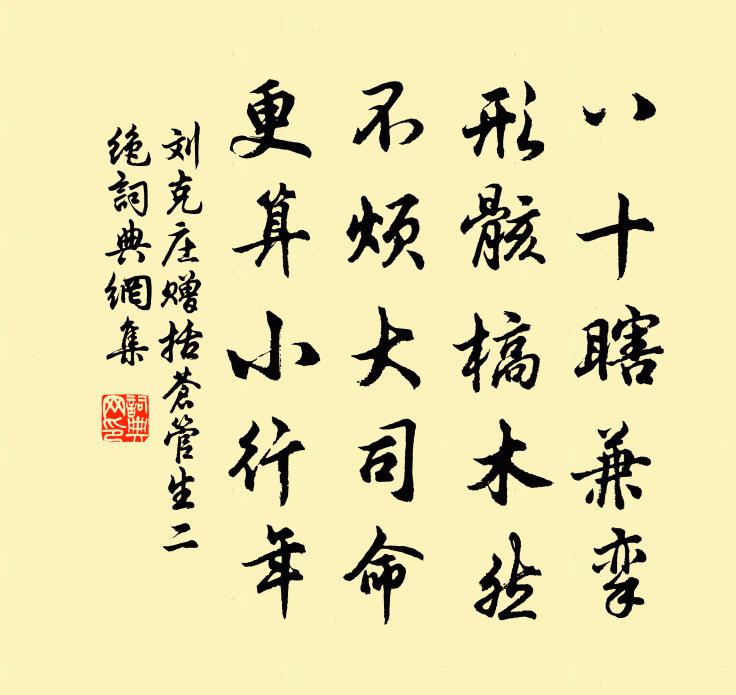 八十瞎兼挛
形骸槁木然
不烦大司命
更算小行年
刘克庄赠括苍管生二
绝词典网集
词典网印